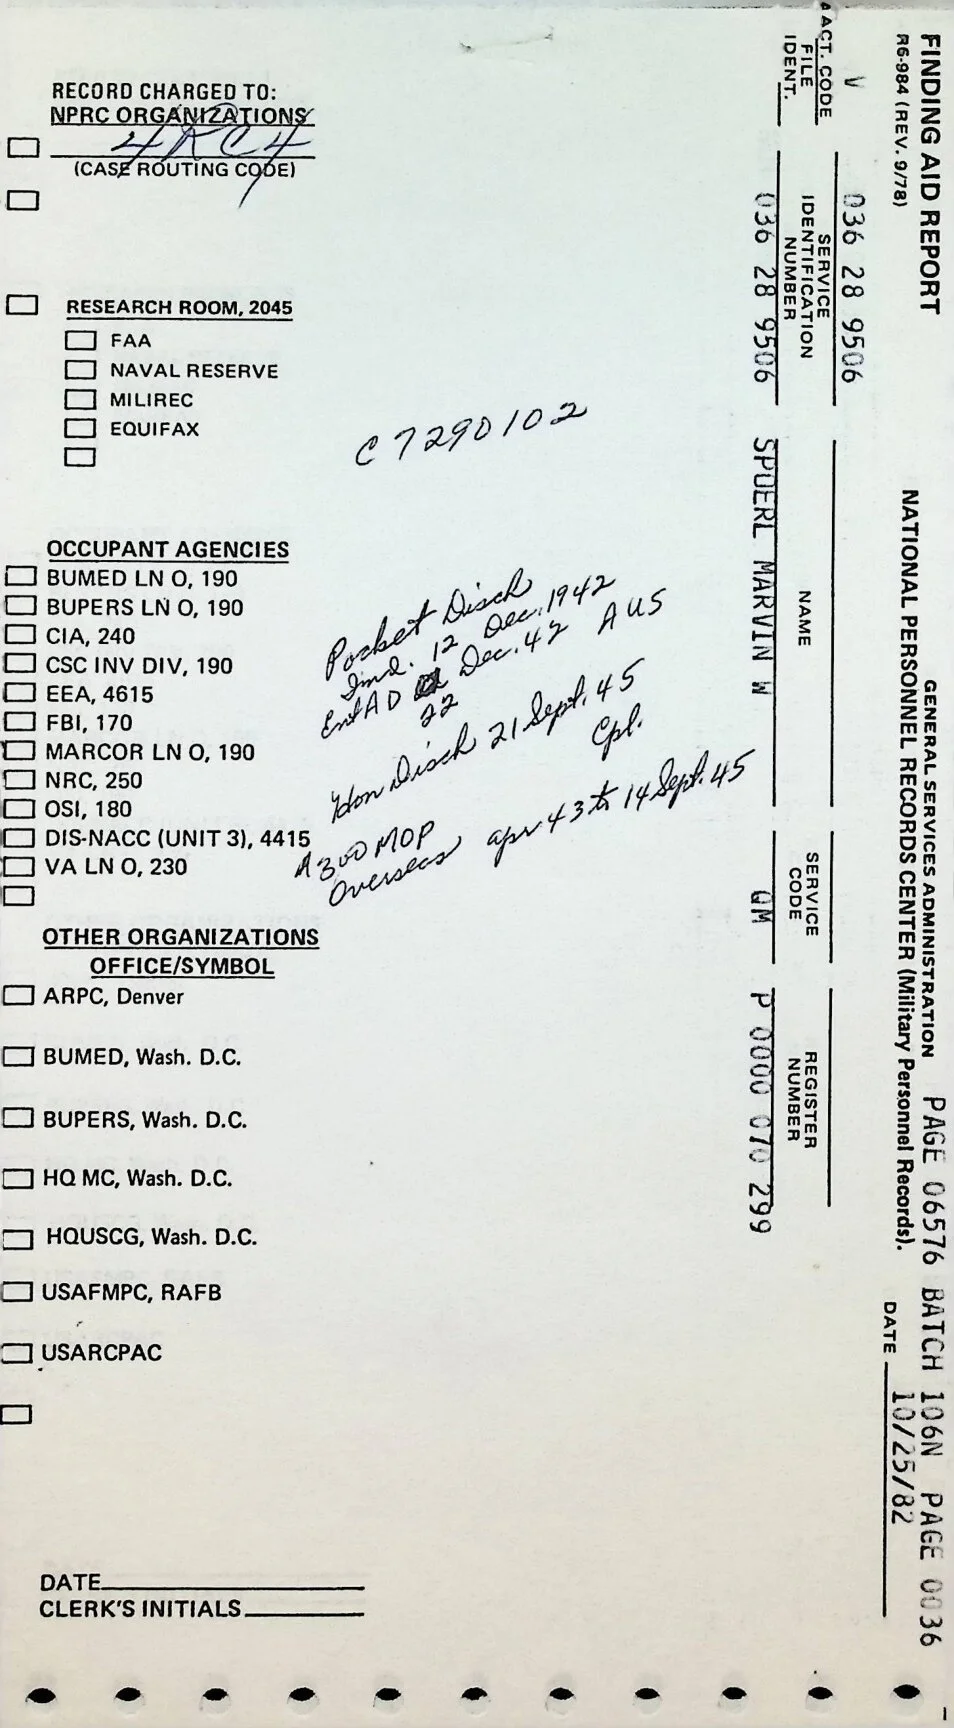 FINDING AID REPORT
R6-984 (REV. 9/78)
GENERAL SERVICES ADMINISTRATION
NATIONAL PERSONNEL RECORDS CENTER (Military Personnel Records).
PAGE 06576 BATCH 106N PAGE 0036
DATE 10/25/82
ACT. CODE
FILE IDENT.
SERVICE IDENTIFICATION NUMBER
NAME
SERVICE CODE
REGISTER NUMBER
V 036 28 9506
036 28 9506 SPOERL MARVIN W QM P 0000 070 299
RECORD CHARGED TO:
NPRC ORGANIZATIONS
4RC4
(CASE ROUTING CODE)
RESEARCH ROOM, 2045
FAA
NAVAL RESERVE
MILIREC
EQUIFAX
C7290102
OCCUPANT AGENCIES
BUMED LN O, 190
BUPERS LN O, 190
CIA, 240
CSC INV DIV, 190
EEA, 4615
FBI, 170
MARCOR LN O, 190
NRC, 250
OSI, 180
DIS-NACC (UNIT 3), 4415
VA LN O, 230
Pocket Disch
Ind. 12 Dec. 1942
Ent AD Dec. 42 AUS
22
Hon Disch 21 Sept. 45
Cpl.
A 300 MOP
Overseas apr 43 to 14 Sept. 45
OTHER ORGANIZATIONS
OFFICE/SYMBOL
ARPC, Denver
BUMED, Wash. D.C.
BUPERS, Wash. D.C.
HQ MC, Wash. D.C.
HQUSCG, Wash. D.C.
USAFMPC, RAFB
USARCPAC
DATE
CLERK'S INITIALS